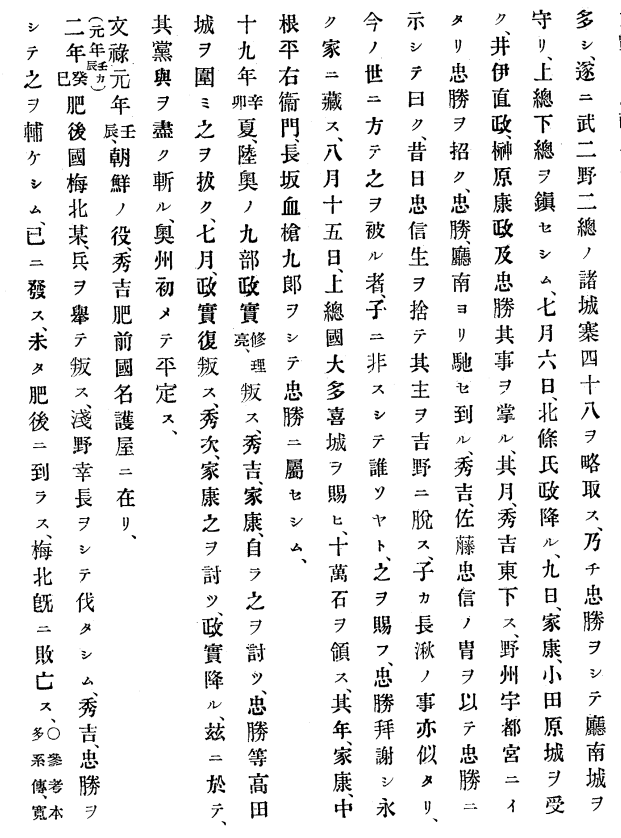 多シ、遂ニ武二野二總ノ諸城寨四十八ヲ略取ス、乃チ忠勝ヲシテ廳南城ヲ
守リ、上總下總ヲ鎭セシム、七月六日、北條氏政降ル、九日、家康、小田原城ヲ受
ク、井伊直政、榊原康政及忠勝其事ヲ掌ル、其月、秀吉東下ス、野州宇都宮ニイ
タリ忠勝ヲ招ク、忠勝、廳南ヨリ馳セ到ル、秀吉、佐藤忠信ノ冑ヲ以テ忠勝ニ
示シテ曰ク、昔日忠信生ヲ捨テ其主ヲ吉野ニ脫ス、子カ長湫ノ事亦似タリ、
今ノ世ニ方テ之ヲ被ル者、子ニ非スシテ誰ソヤト、之ヲ賜フ、忠勝拜謝シ永
ク家ニ藏ス、八月十五日、上總國大多喜城ヲ賜ヒ、十萬石ヲ領ス、其年、家康、中
根平右衞門、長坂血槍九郎ヲシテ忠勝ニ屬セシム、
十九年辛卯夏、陸奧ノ九部政實修理亮、叛ス、秀吉、家康、自ラ之ヲ討ツ、忠勝等高田
城ヲ圍ミ之ヲ拔ク、七月、政實復叛ス、秀次、家康之ヲ討ツ、政實降ル、玆ニ於テ、
其黨與ヲ盡ク斬ル、奧州初メテ平定ス、
文祿元年壬辰、朝鮮ノ役、秀吉肥前國名護屋ニ在リ、
(元年壬辰カ)
二年癸巳肥後國梅北某、兵ヲ擧テ叛ス、淺野幸長ヲシテ伐タシム、秀吉、忠勝ヲ
シテ之ヲ輔ケシム、已ニ發ス、未タ肥後ニ到ラス、梅北旣ニ敗亡ス、〇參考本多系傳、寬